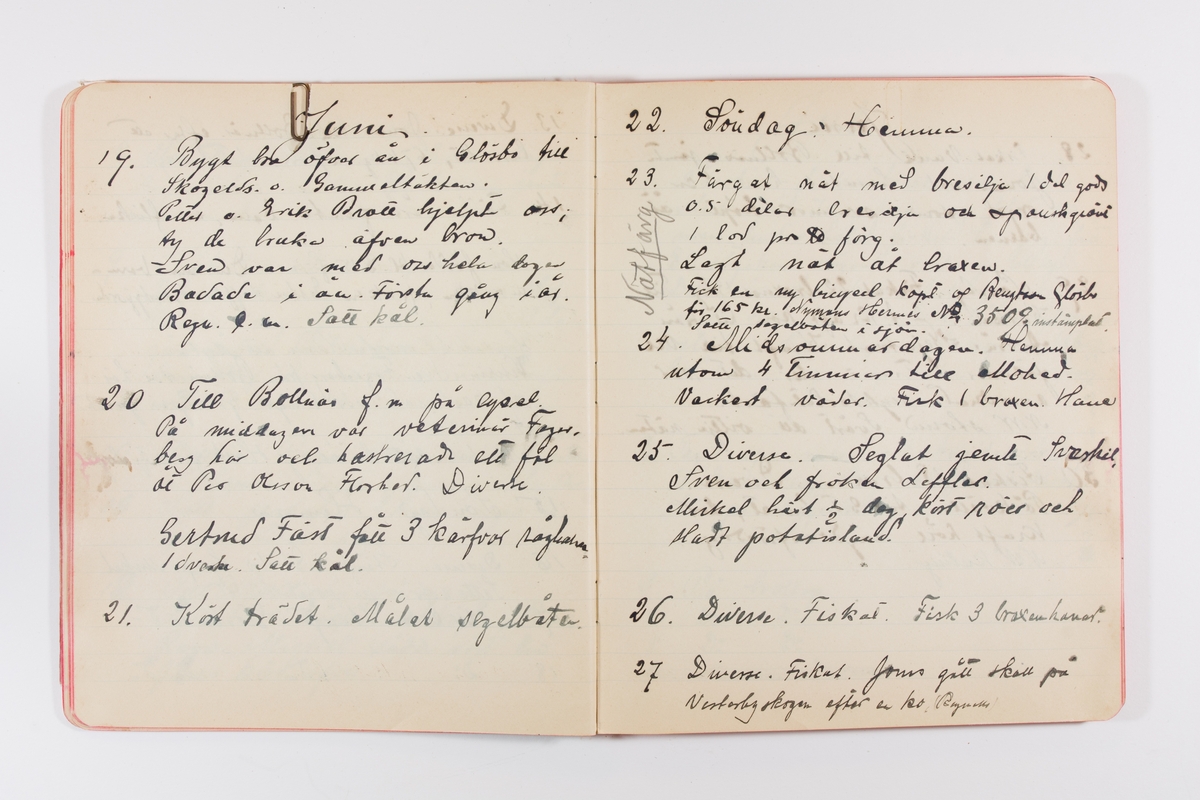 Juni.
19. Bygt bro öfver ån i Glösbo till
Skogelds. o. Gammeltäkten.
Petter o. Erik Brott hjelpt oss;
ty de bruka äfven bron.
Sven var med oss hela dagen
Badade i ån. Första gång i år.
Regn. e. m. Satt kål.
20 Till Bollnäs f.m på cycel.
På middagen var veterinär Fager-
berg här och kastrerade ett föl
åt Per Olsson Florhed. Diverse.
Gertrud Fäst fått 3 kärfvor råghalm
1 öre st. Satt kål.
21. Kört trädet. Målat segelbåten.
22. Söndag. Hemma.
Nätfärg.
23. Färgat nät med bresilja 1 del gods
0.5 delar bresilja och spanskgrönt
1 lod pr färg.
Lagt nät åt braxen.
Fick en ny bicycel köpt af Bengtsson Glösbo
för 165 kr. Nymans Hermes No 3509 instämplat.
Satte segelbåten i sjön.
24. Midsommardagen. Hemma
utom 4 timmar till Mohed.
Vackert väder. Fick 1 braxen. Hane
25. Diverse. Seglat jemte
Sven och fröken Löffler.
Mickel häst ½ dag kört röer och
Hadt potatisland.
26. Diverse. Fiskat. Fick 3 braxenhanar.
27 Diverse. Fiskat. Jons gått skall på
Vesterbyskogen efter en ko.